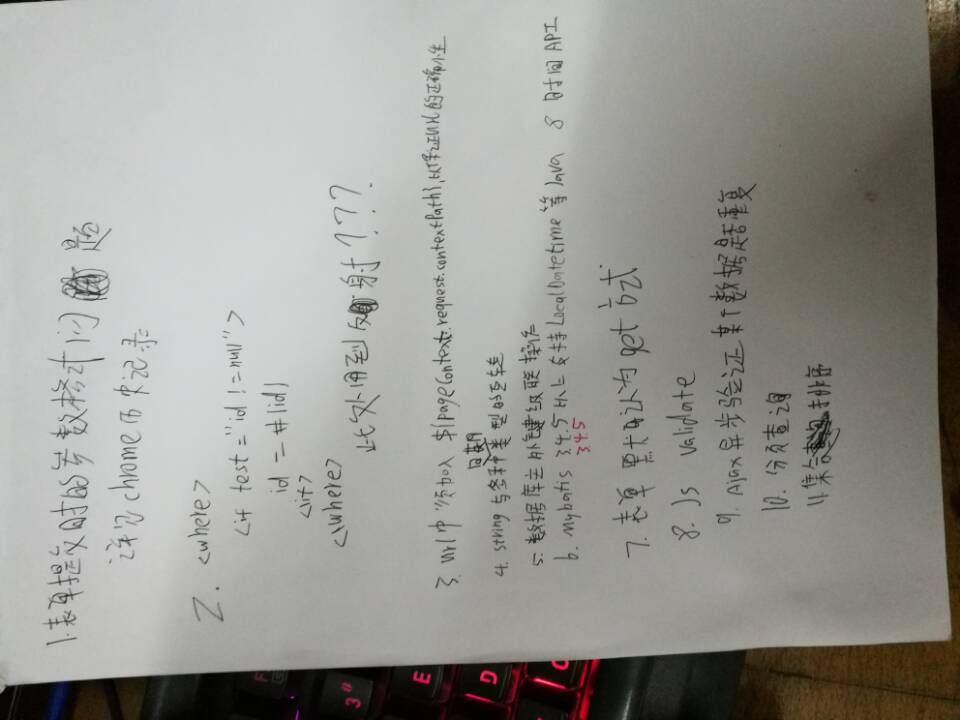 1.表单提交时的参数格式问题
详见chrome历史记录
2. <where>
<if test="id !=null">
id = #{id}
<\if>
<\where>
此处用到反射???
3. url中须加入 ${pageContext.request.contextPath},以保证url的正确性
日期
4. string与各种类型的互转
5. 数据库主外键级联操作
6. mybatis 3.4.5以上支持LocalDatetime等Java 8 时间API
3.4.5
7. 表单默认为get方式
8. Js validate
9. Ajax异步验证某个数据是否重复
10. 分页查询
11.集合排序
3#
E
D